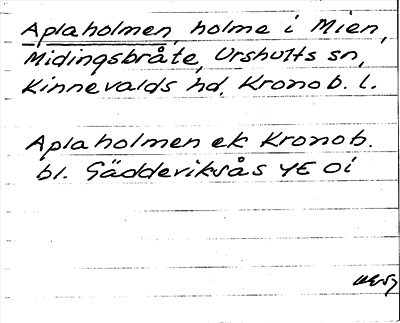 Aplaholmen, holme i Mien,
Midingsbråte, Urshults sn,
Kinnevalds hd, Kronob. l.
Aplaholmen ek Kronob.
bl. Gädderiksås 4E Oi